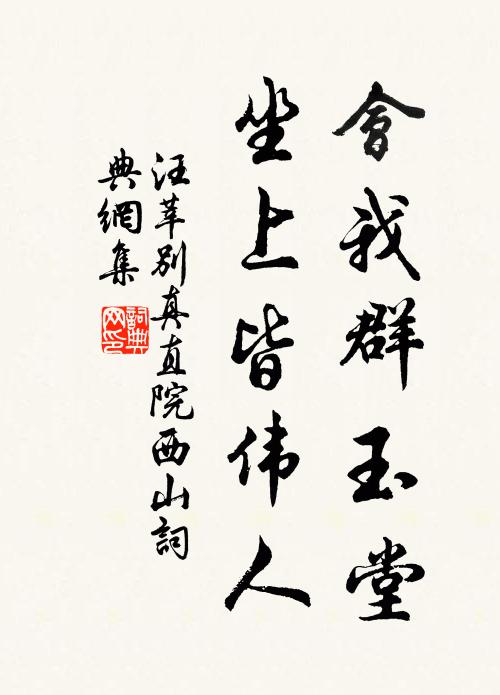 會我群玉堂
坐上皆伟人
汪莘别真直院西山詞
典網集
詞典网印